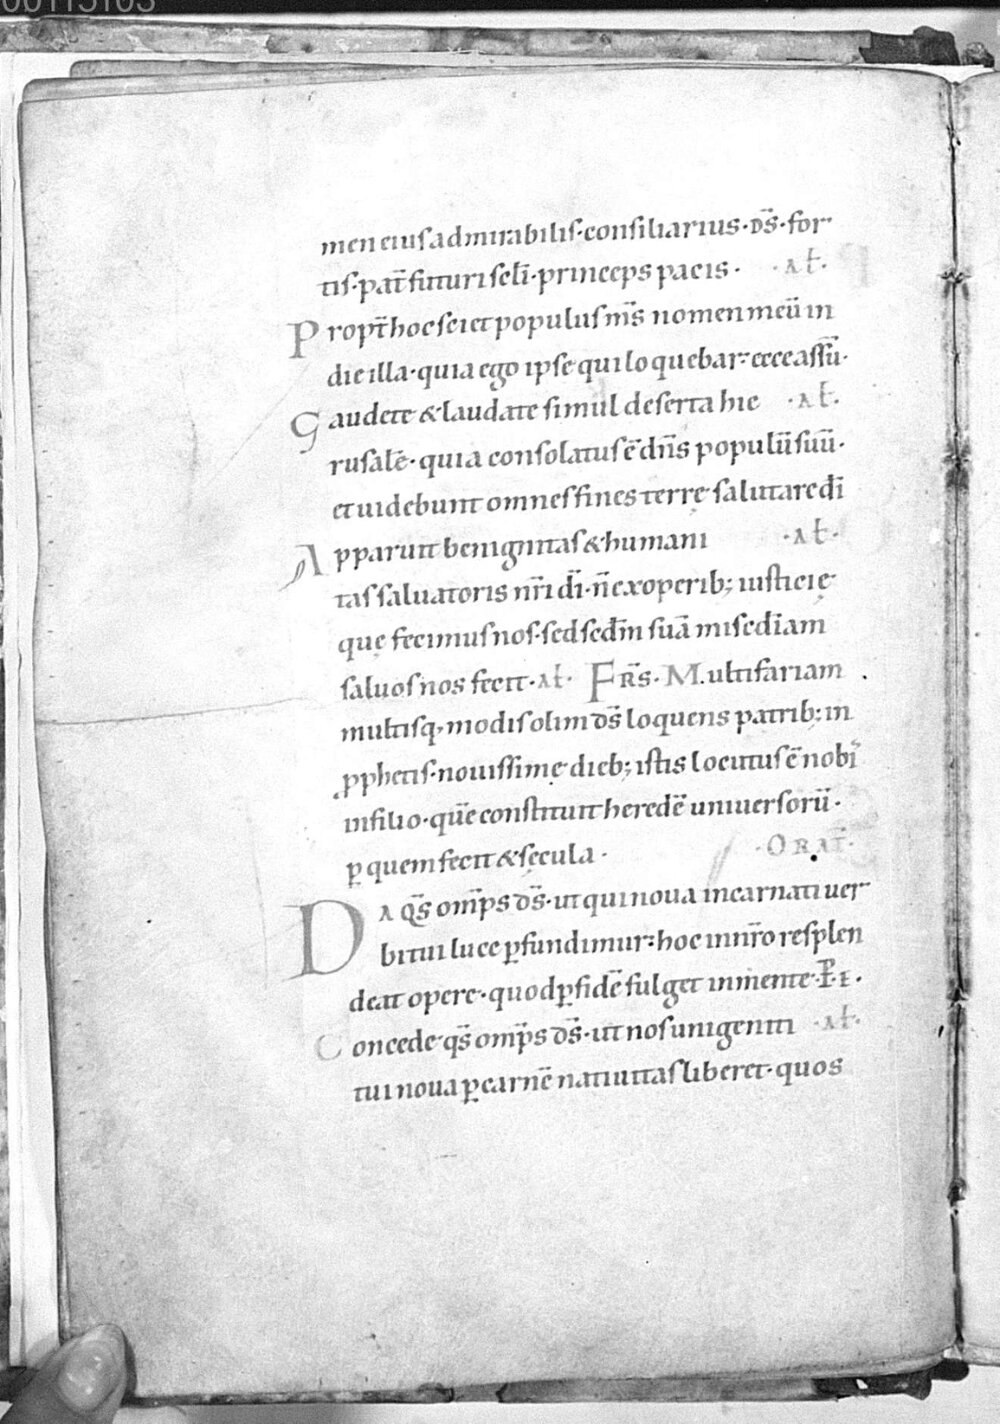 men eius admirabilis·consiliarius·ds̄·for
tis·pat̄ futuri scl̄i·princeps pacis· ·Al̄·
Propt̄ hoc sciet populus m̄s nomen meū in
die illa·quia ego ipse qui loquebar: ecce assū·
Gaudete & laudate simul deserta hie ·Al̄·
rusalē·quia consolatus ē dn̄s populū suū·
et uidebunt omnes fines terrę salutare dī
Apparuit benignitas & humani ·Al̄·
tas saluatoris nr̄i dī·n̄ ex operib; iusticię
quę fecimus nos·sed scdm̄ suā misc̄diam
saluos nos fecit·Al̄· FRS̄·Multifariam
multisq; modis olim ds̄ loquens patrib; in
ꝓphetis·nouissimę dieb; istis locutus ē nobis
in filio·quē constituit heredē uniuersorū·
ꝑ quem fecit & sęcula· ·ORAT̄·
DA qs̄ omp̄s ds̄·ut qui noua incarnati uer
bi tui luce ꝑfundimur: hoc in nr̄o resplen
deat opere·quod ꝑ fidē fulget in mente·P̄·I·
Concede qs̄ omp̄s ds̄·ut nos unigeniti ·Al̄·
tui noua ꝑ carnē natiuitas liberet·quos